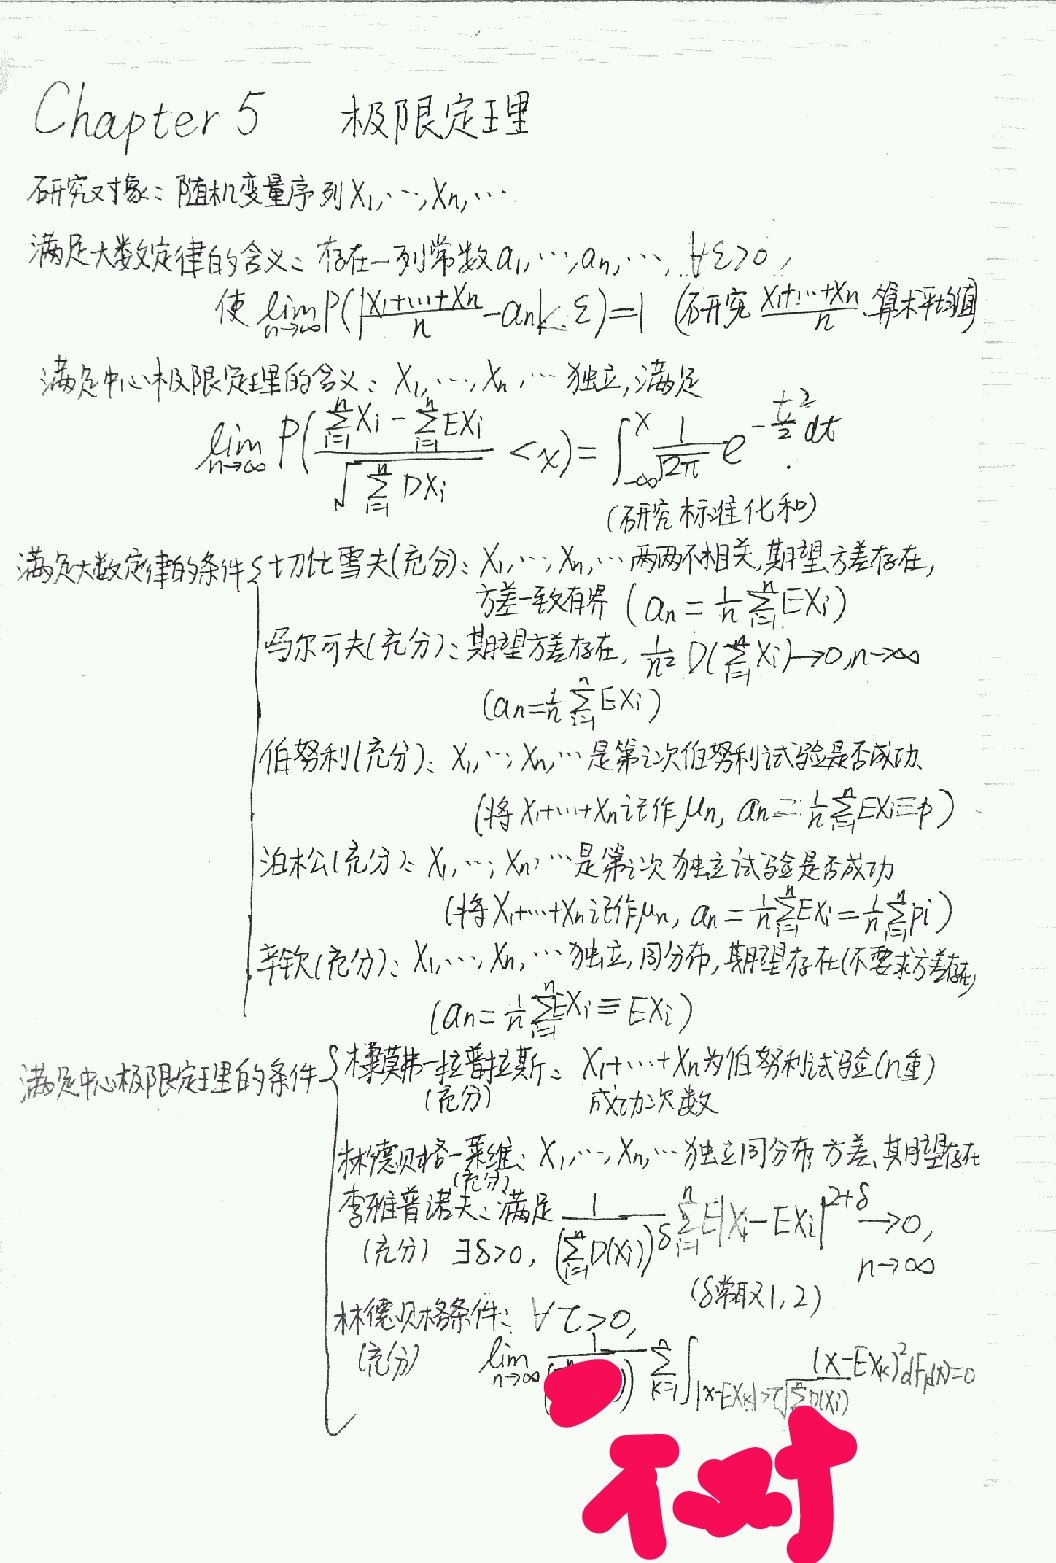 Chapter 5 极限定理
研究对象：随机变量序列X₁,…,Xn,…
满足大数定律的含义：存在一列常数a₁,…,an,…, ∀ε>0,
使 lim n→∞ P(|(X₁+…+Xn)/n - an|<ε)=1 (研究 (X₁+…+Xn)/n 算术平均值)
满足中心极限定理的含义：X₁,…,Xn,…独立,满足
lim n→∞ P((∑i=1 n Xi - ∑i=1 n EXi)/√(∑i=1 n DXi) < x) = ∫-∞ x 1/√2π e^(-t²/2) dt
(研究标准化和)
满足大数定律的条件{切比雪夫(充分)：X₁,…,Xn,…两两不相关,期望方差存在,
方差一致有界 (an = 1/n ∑i=1 n EXi)
马尔可夫(充分)：期望方差存在, 1/n² D(∑i=1 n Xi)→0,n→∞
(an=1/n ∑i=1 n EXi)
伯努利(充分)：X₁,…,Xn,…是第i次伯努利试验是否成功
(将X₁+…+Xn记作μn, an=1/n ∑i=1 n EXi≡p)
泊松(充分)：X₁,…,Xn,…是第i次独立试验是否成功
(将X₁+…+Xn记作μn, an=1/n ∑i=1 n EXi=1/n ∑i=1 n pi)
辛钦(充分)：X₁,…,Xn,…独立,同分布,期望存在(不要求方差存在)
(an=1/n ∑i=1 n EXi≡EXi)
满足中心极限定理的条件{棣莫弗-拉普拉斯：X₁+…+Xn为伯努利试验(n重)
(充分) 成功次数
林德贝格-莱维：X₁,…,Xn,…独立同分布,方差、期望存在
(充分)
李雅普诺夫：满足 1/(∑i=1 n D(Xi))^δ ∑i=1 n E|Xi-EXi|^(2+δ) →0,
(充分) ∃δ>0, n→∞
(δ常取1,2)
林德贝格条件：∀τ>0,
(充分) lim n→∞ 1/ ∑k=1 n ∫|x-EXk|>τ√(∑i=1 n D(Xi)) (x-EXk)²dFk(x)=0
不对